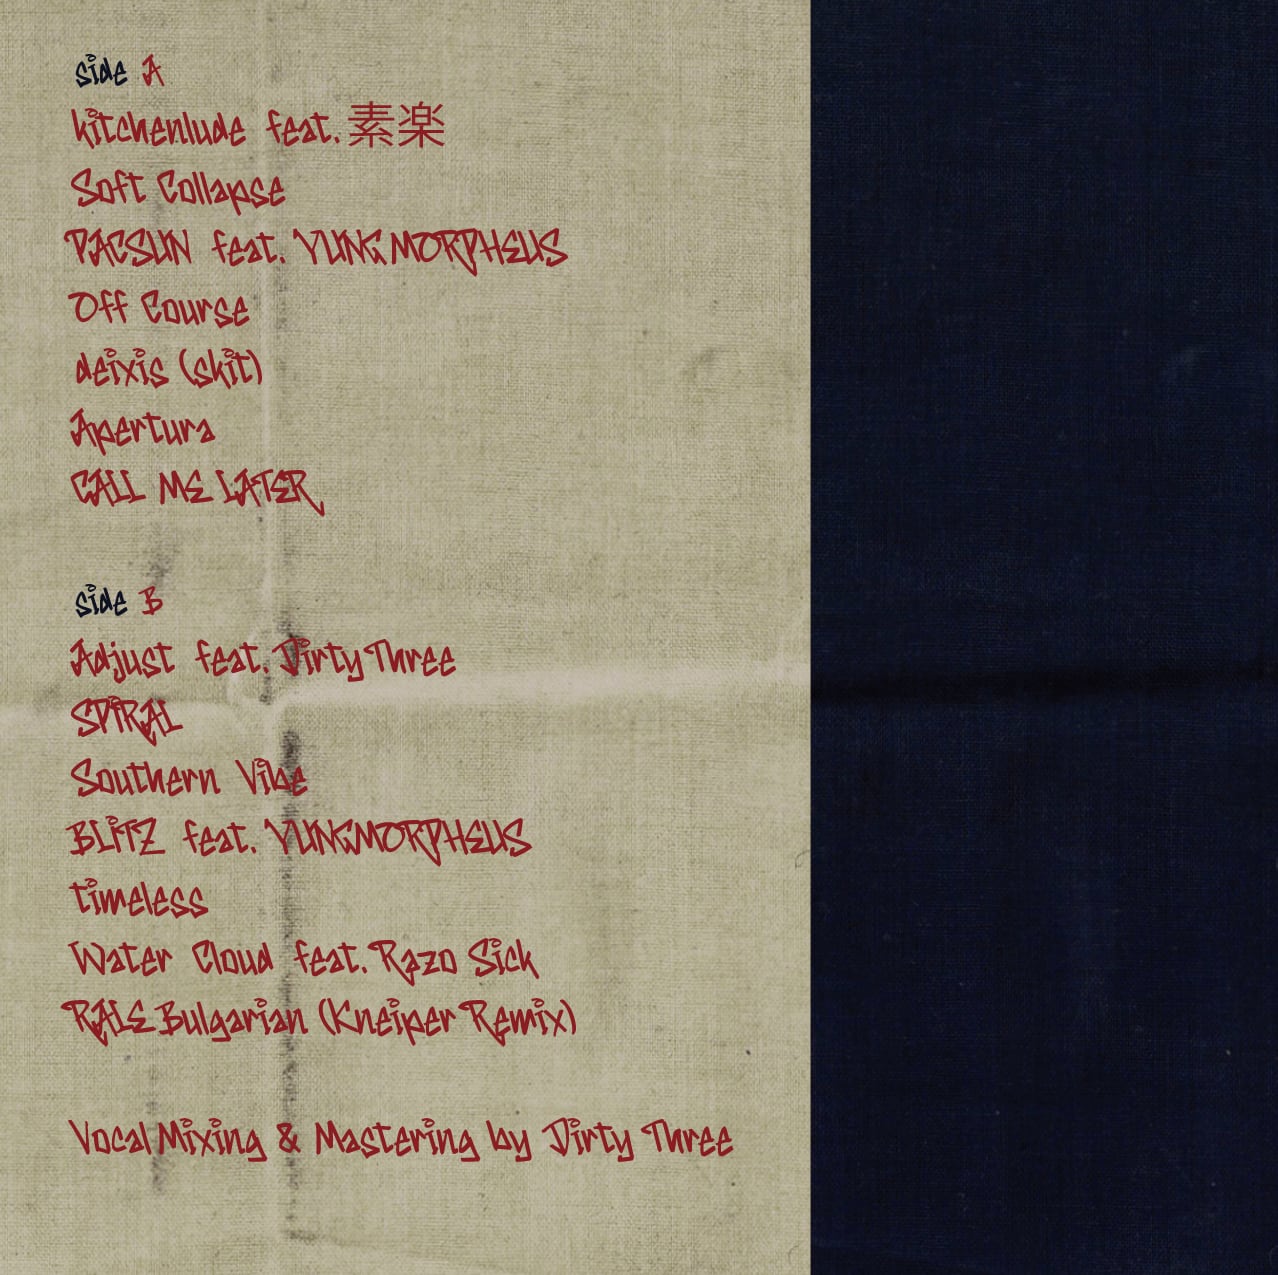 side A
kitchenlude feat. 素楽
Soft Collapse
PACSUN feat. YUNG MORPHEUS
Off Course
deixis (skit)
Apertura
CALL ME LATER
side B
Adjust feat. Dirty Three
SPiRAL
Southern Vibe
BLiTZ feat. YUNGMORPHEUS
timeless
Water Cloud feat. Razo Sick
RALE Bulgarian (Kneiper Remix)
Vocal Mixing & Mastering by Dirty Three